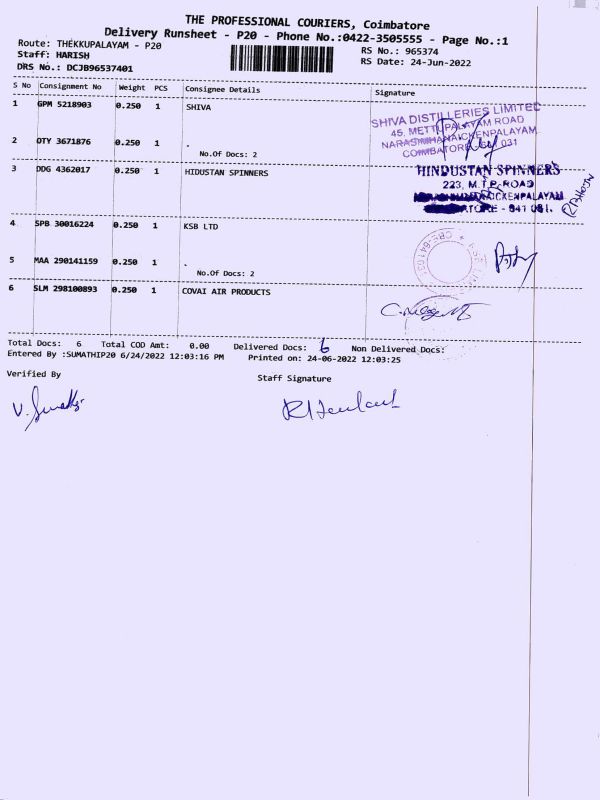 THE PROFESSIONAL COURIERS, Coimbatore
Delivery Runsheet - P20 - Phone No.:0422-3505555 - Page No.:1
Route: THEKKUPALAYAM - P20
RS No.: 965374
Staff: HARISH
RS Date: 24-Jun-2022
DRS No.: DCJB96537401
S No Consignment No Weight PCS Consignee Details Signature
1 GPM 5218903 0.250 1 SHIVA
SHIVA DISTILLERIES LIMITED
45, METTUPALAYAM ROAD
NARASIMHANAICKENPALAYAM
COIMBATORE - 641 031
2 OTY 3671876 0.250 1 .
No.Of Docs: 2
3 DDG 4362017 1 HIDUSTAN SPINNERS
HINDUSTAN SPINNERS
223, M.T.P. ROAD
4 SPB 30016224 0.250 1 KSB LTD
5 MAA 290141159 0.250 1 .
No.Of Docs: 2
6 SLM 298100893 0.250 1 COVAI AIR PRODUCTS
Total Docs: 6 Total COD Amt: 0.00 Delivered Docs: 6 Non Delivered Docs:
Entered By :SUMATHIP20 6/24/2022 12:03:16 PM Printed on: 24-06-2022 12:03:25
Verified By
Staff Signature